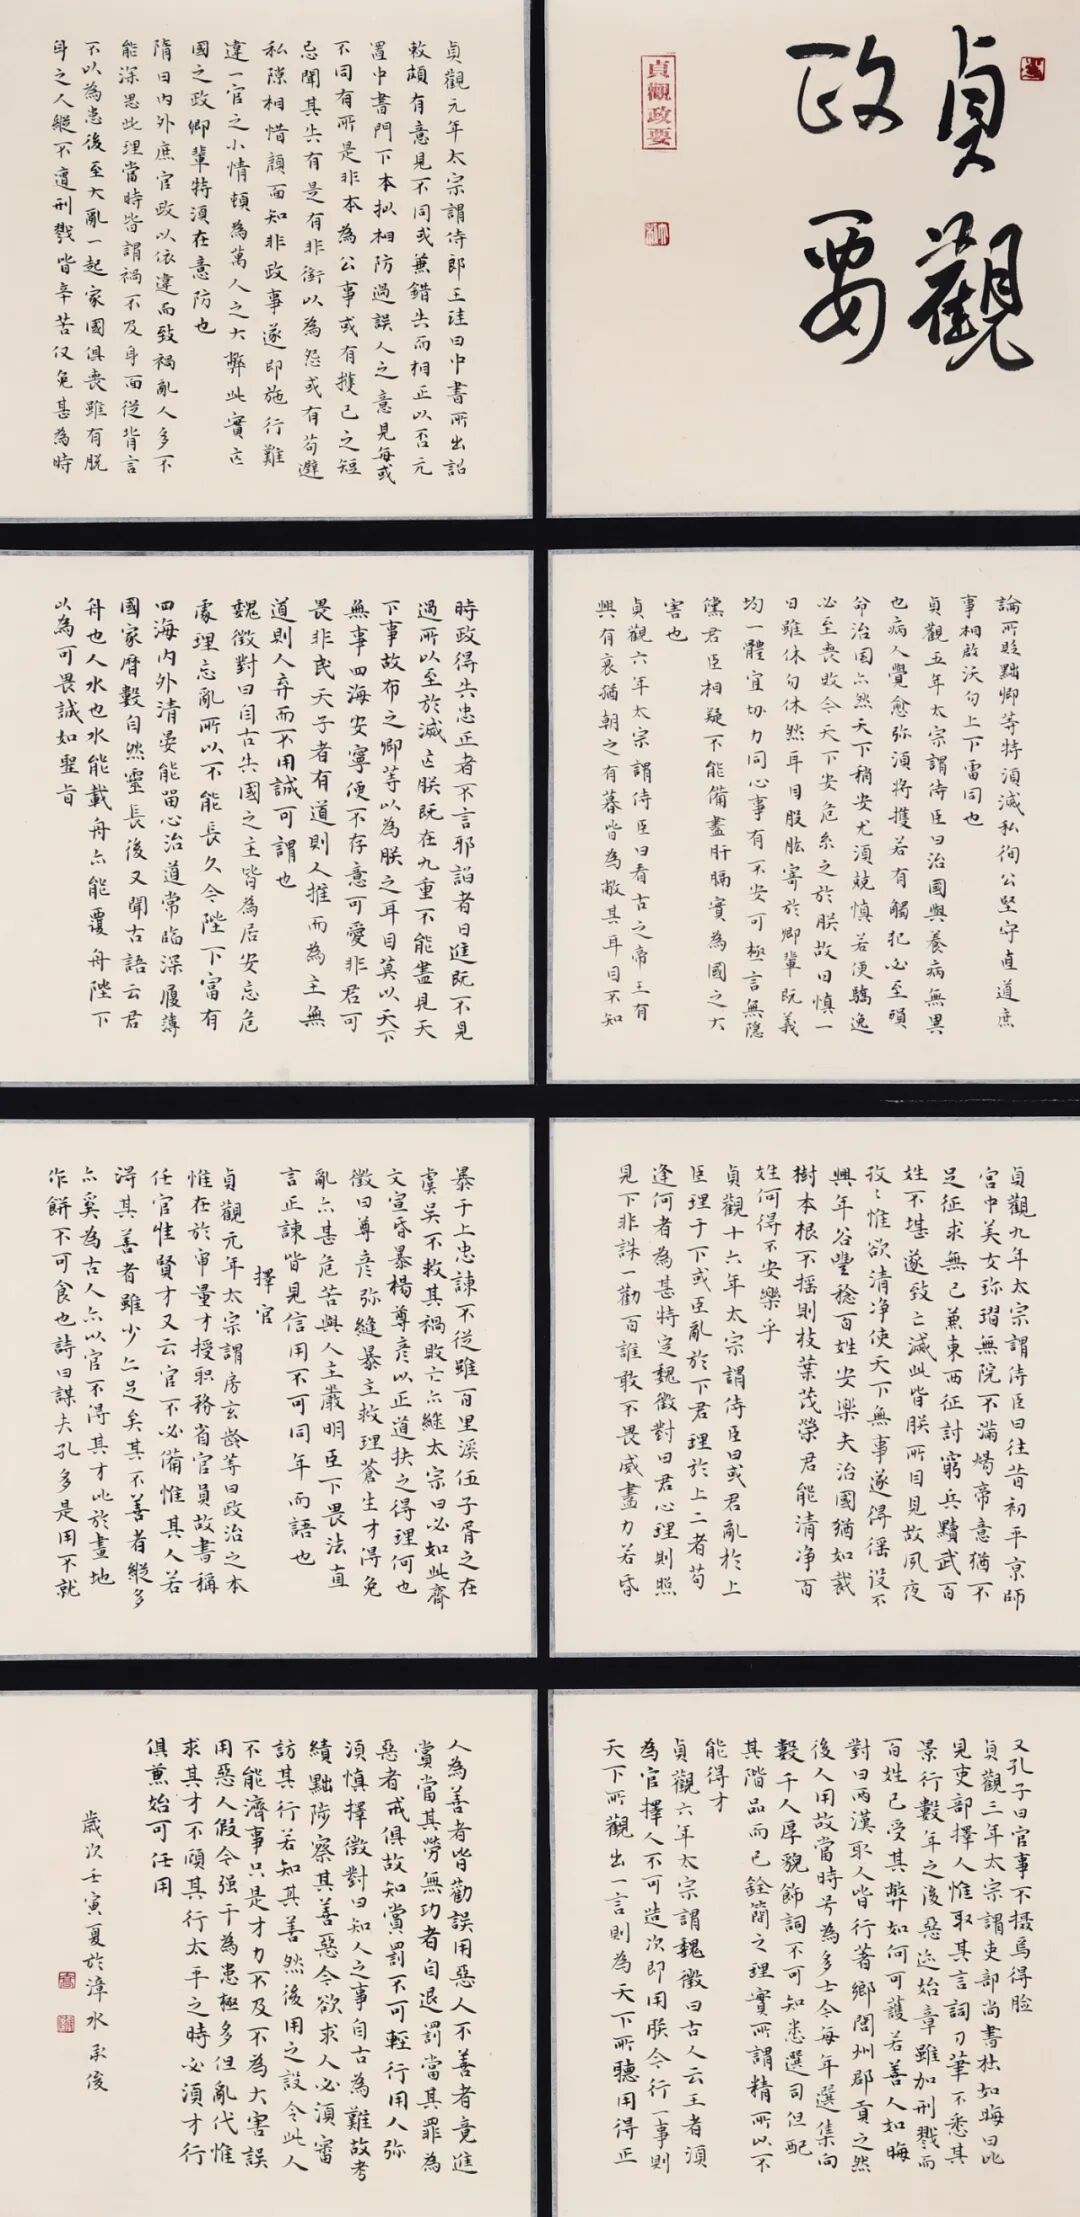 貞觀
政要
貞觀政要
貞觀元年太宗謂侍郎王珪曰中書所出詔
敕頗有意見不同或兼錯失而相正以否元
置中書門下本拟相防過誤人之意見每或
不同有所是非本為公事或有護己之短
忌聞其失有是有非銜以為怨或有苟避
私隙相惜顏面知非政事遂即施行難
違一官之小情頓為萬人之大弊此實亡
國之政卿輩特須在意防也
隋日內外庶官政以依違而致禍亂人多不
能深思此理當時皆謂禍不及身面從背言
不以為患後至大亂一起家國俱喪雖有脫
身之人縱不遭刑戮皆辛苦仅免甚為時
論所貶黜卿等特須滅私徇公堅守直道庶
事相啟沃勿上下雷同也
貞觀五年太宗謂侍臣曰治國與養病無異
也病人覺愈弥須將護若有觸犯必至殞
命治国亦然天下稍安尤須兢慎若便驕逸
必至喪敗今天下安危系之於朕故日慎一
日雖休勿休然耳目股肱寄於卿輩既義
均一體宜协力同心事有不安可極言無隐
儻君臣相疑不能備盡肝膈實為國之大
害也
貞觀六年太宗謂侍臣曰看古之帝王有
興有衰猶朝之有暮皆為敝其耳目不知
時政得失忠正者不言邪諂者日進既不見
過所以至於滅亡朕既在九重不能盡見天
下事故布之卿等以為朕之耳目莫以天下
無事四海安寧便不存意可愛非君可
畏非民天子者有道則人推而為主無
道則人弃而不用誠可謂也
魏徵對曰自古失國之主皆為居安忘危
處理忘亂所以不能長久今陛下富有
四海內外清晏能留心治道常臨深履薄
國家曆數自然靈長後又聞古語云君
舟也人水也水能載舟亦能覆舟陛下
以為可畏誠如聖旨
貞觀九年太宗謂侍臣曰往昔初平京師
宮中美女珍翫無院不滿煬帝意猶不
足征求無已兼東西征討窮兵黷武百
姓不堪遂致亡滅此皆朕所目見故夙夜
孜〻惟欲清净使天下無事遂得徭役不
興年谷豐稔百姓安樂夫治國猶如栽
樹本根不摇則枝葉茂榮君能清净百
姓何得不安樂乎
貞觀十六年太宗謂侍臣曰或君亂於上
臣理于下或臣亂於下君理於上二者苟
逢何者為甚特定魏徵對曰君心理則照
見下非誅一勸百誰敢不畏威盡力若昏
暴于上忠諫不從雖百里溪伍子胥之在
虞吴不救其禍敗亡亦継太宗曰必如此齊
文宣昏暴楊尊彦以正道扶之得理何也
徵曰尊彦弥縫暴主救理蒼生才得免
亂亦甚危苦與人主嚴明臣下畏法直
言正諫皆見信用不可同年而語也
擇官
貞觀元年太宗謂房玄齡等曰政治之本
惟在於审量才授职務省官員故書稱
任官惟賢才又云官不必備惟其人若
得其善者雖少亦足矣其不善者縱多
亦奚為古人亦以官不得其才比於畫地
作餅不可食也詩曰謀夫孔多是用不就
又孔子曰官事不摄焉得脸
貞觀三年太宗謂吏部尚書杜如晦曰比
見吏部擇人惟取其言詞刀筆不悉其
景行數年之後惡迹始章雖加刑戮而
百姓已受其弊如何可護若善人如晦
對曰两漢取人皆行著鄉閭州郡貢之然
後人用故當時号為多士今每年選集向
數千人厚貌飾詞不可知悉選司但配
其階品而已銓簡之理實所謂精所以不
能得才
貞觀六年太宗謂魏徵曰古人云王者須
為官擇人不可造次即用朕今行一事則
天下所觀出一言則為天下所聽用得正
人為善者皆勸誤用惡人不善者竟進
賞當其勞無功者自退罰當其罪為
惡者戒俱故知賞罰不可輕行用人弥
須慎擇徵對曰知人之事自古為難故考
績黜陟察其善惡今欲求人必須審
訪其行若知其善然後用之設令此人
不能濟事只是才力不及不為大害誤
用惡人假令强干為患極多但亂代惟
求其才不顾其行太平之時必須才行
俱兼始可任用
歲次壬寅夏於漳水承俊